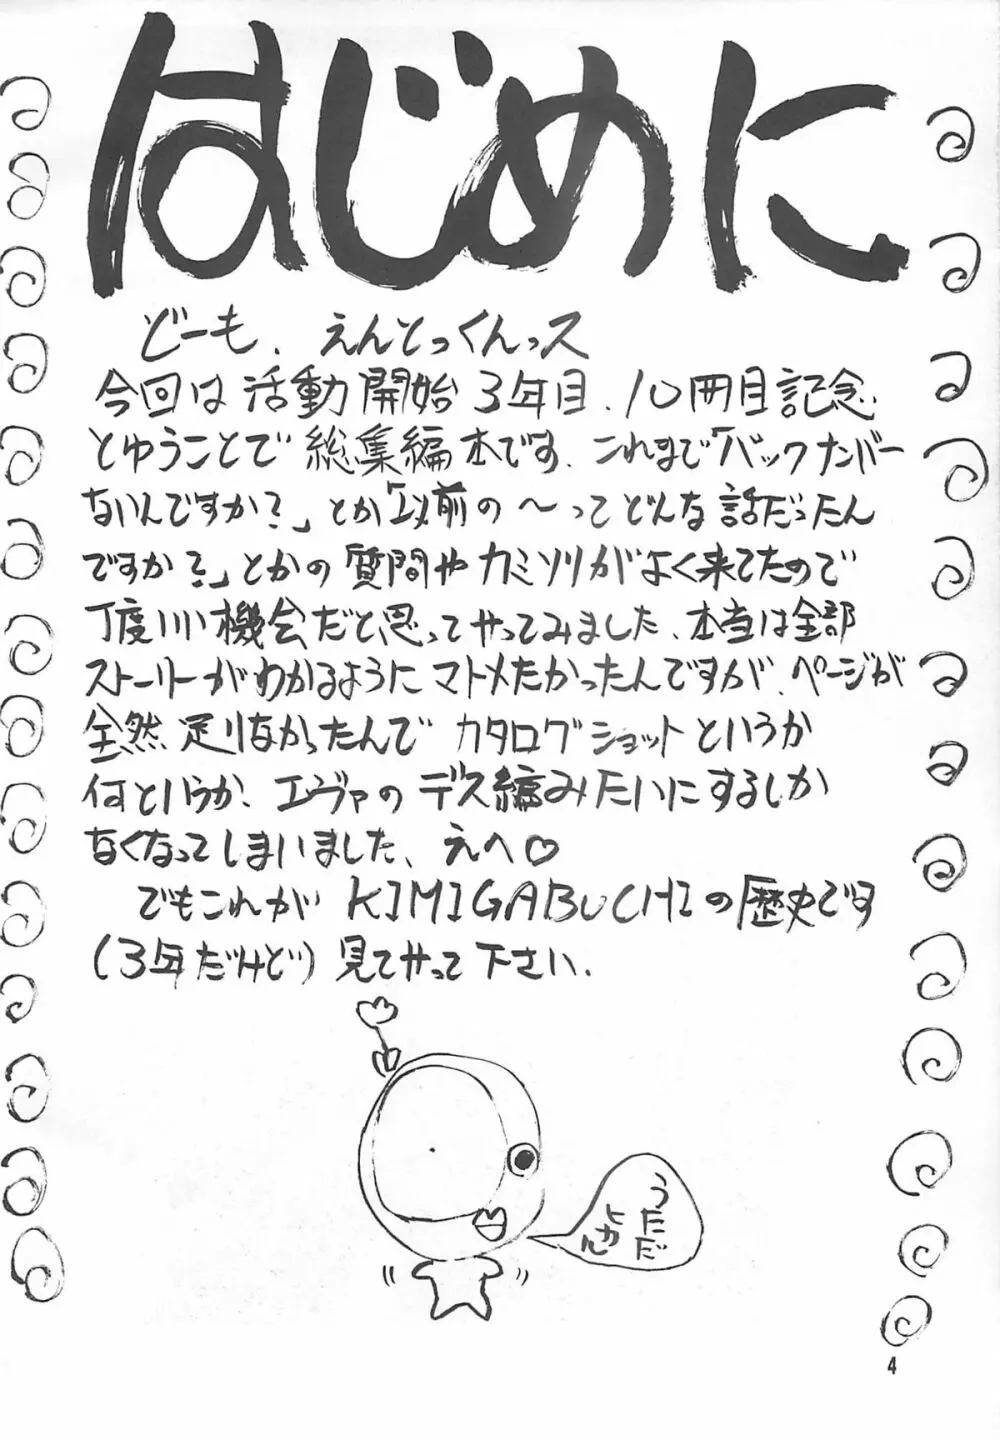 はじめに
どーも、えんとっくんっス
今回は活動開始3年目、10冊目記念
とゆうことで総集編本です、これまで「バックナンバー
ないんですか?」とか「以前の〜ってどんな話だったん
ですか?」とかの質問やカミソリがよく来てたので
丁度いい機会だと思ってやってみました、本当は全部
ストーリーがわかるようにマトメたかったんですが、ページが
全然足りなかったんでカタログショットというか
何というか、エヴァのデス編みたいにするしか
なくなってしまいました、えへ♡
でもこれがKIMIGABUCHIの歴史です
(3年だけど)見てやって下さい、
うただ
ヒカル
4